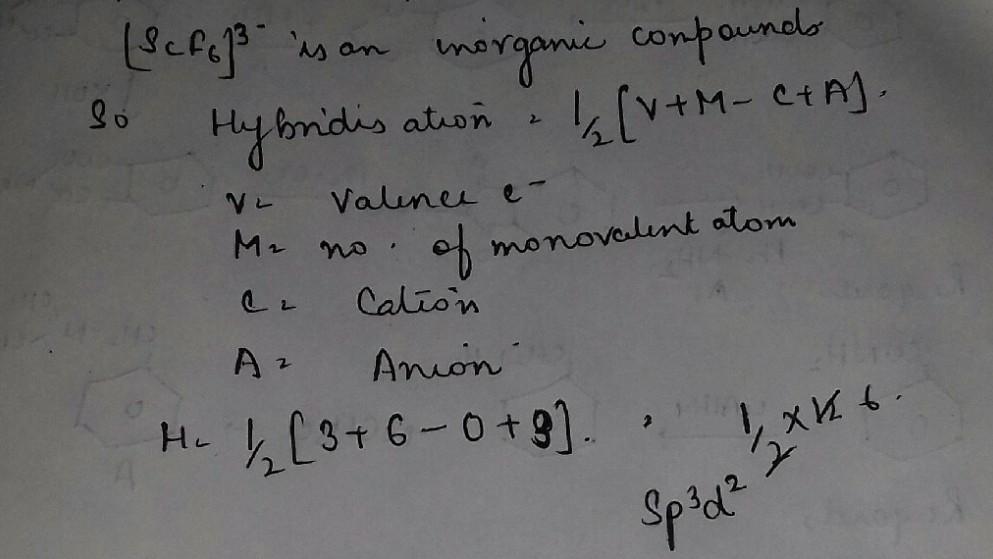 [ScF6]3- is an inorganic compounds
So Hybridisation = 1/2 [V+M- C+A].
V= Valence e-
M= no. of monovalent atom
C= Cation
A= Anion
H= 1/2 [3+6-0+3]. , 1/2 x 12 6.
Sp3d2